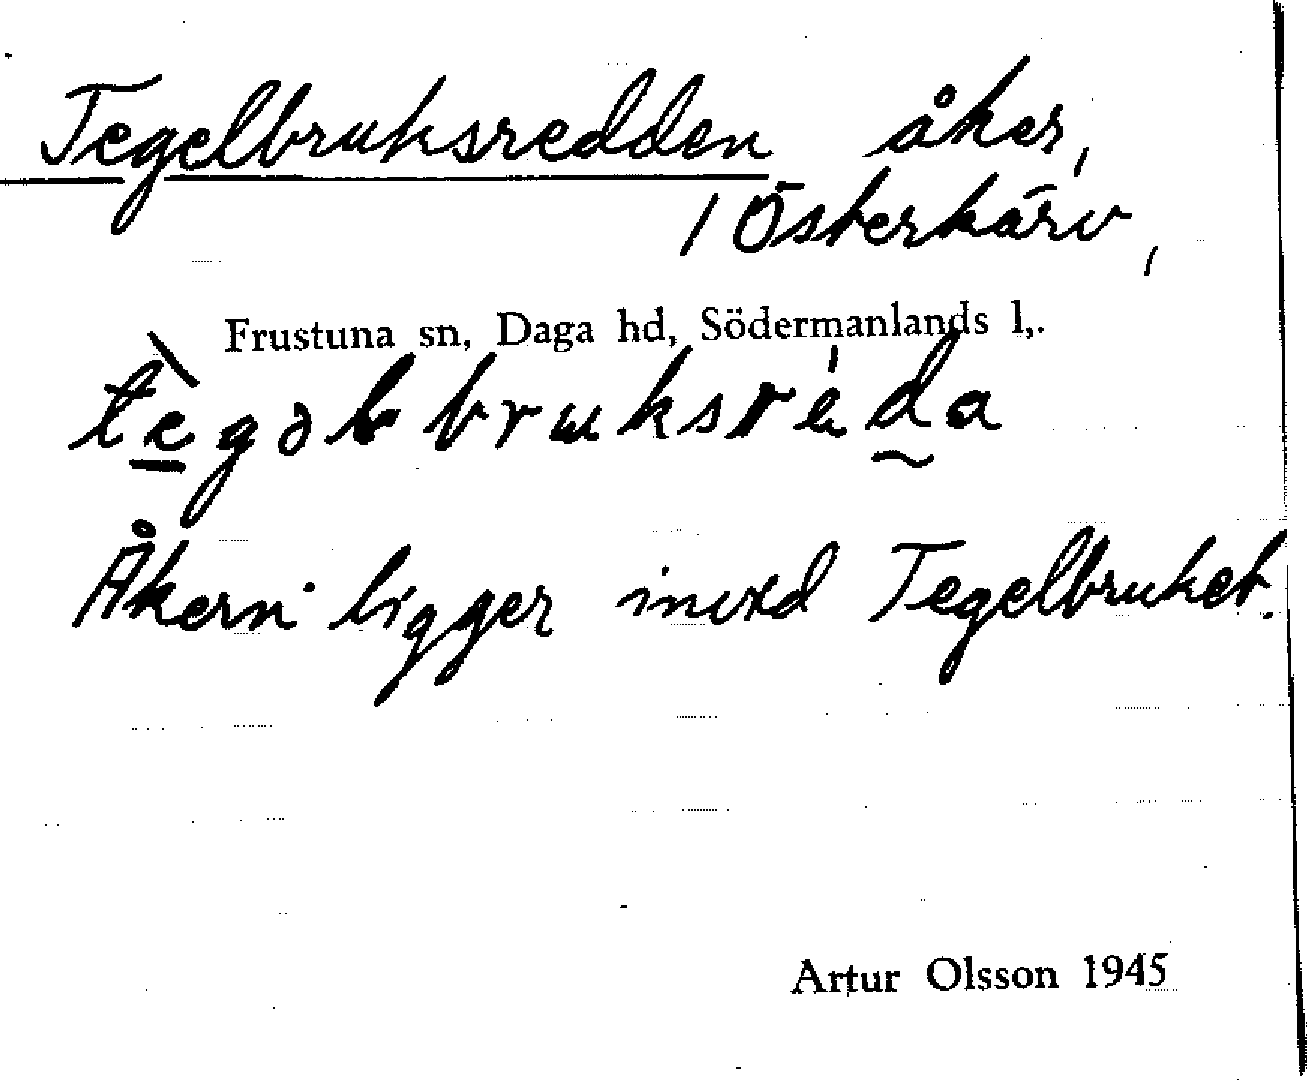 Tegelbruksredden åker,
/ Österkärv,
Frustuna sn, Daga hd, Södermanlands l,.
tègəlbruksréda
Åkern ligger invid Tegelbruket.
Artur Olsson 1945